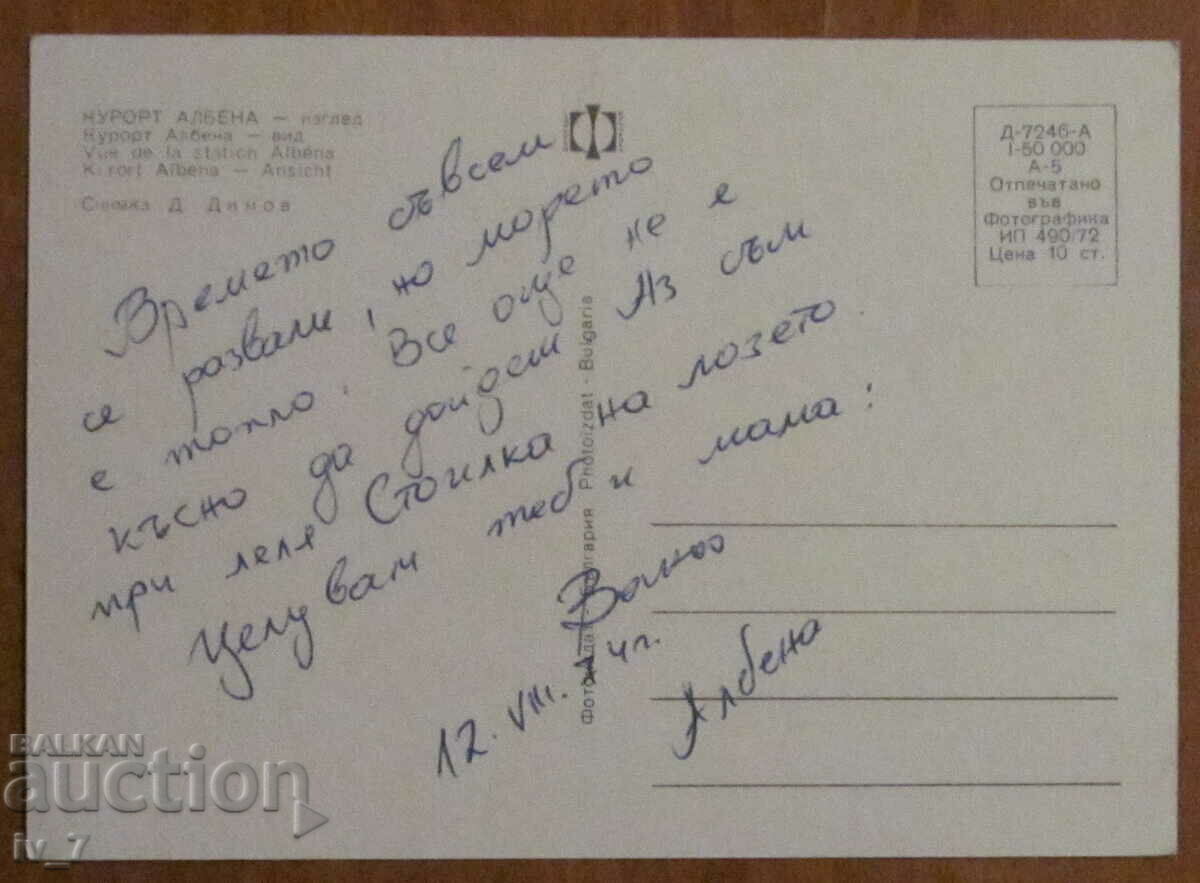 КУРОРТ АЛБЕНА — изглед
Курорт Албена — вид
Vue de la station Albéna
Kurort Albena — Ansicht
Снимка Д. Димов
Д-7246-А
I-50 000
А-5
Отпечатано
във
Фотографика
ИП 490/72
Цена 10 ст.
Времето съвсем
се развали, но морето
е топло. Все още не е
късно да дойдеш Аз съм
при леля Стоилка на лозето.
Целувам теб и мама!
12. VIII. 74г.
Албена
Photoizdat - Bulgaris
BALKAN
auction
iv_7